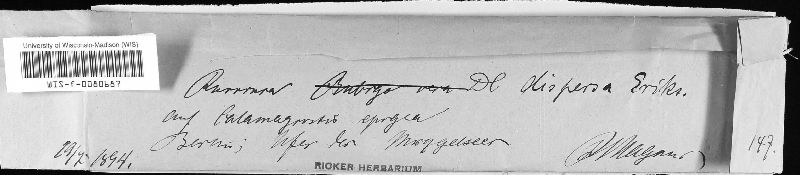 University of Wisconsin-Madison (WIS)
WIS-F-0080687
Puccinia Rubigo vera DC dispersa Eriks.
auf Calamagrostis epigea
Berlin; Ufer des Müggelsees
1894.
P. Magnus
147.
RICKER HERBARIUM